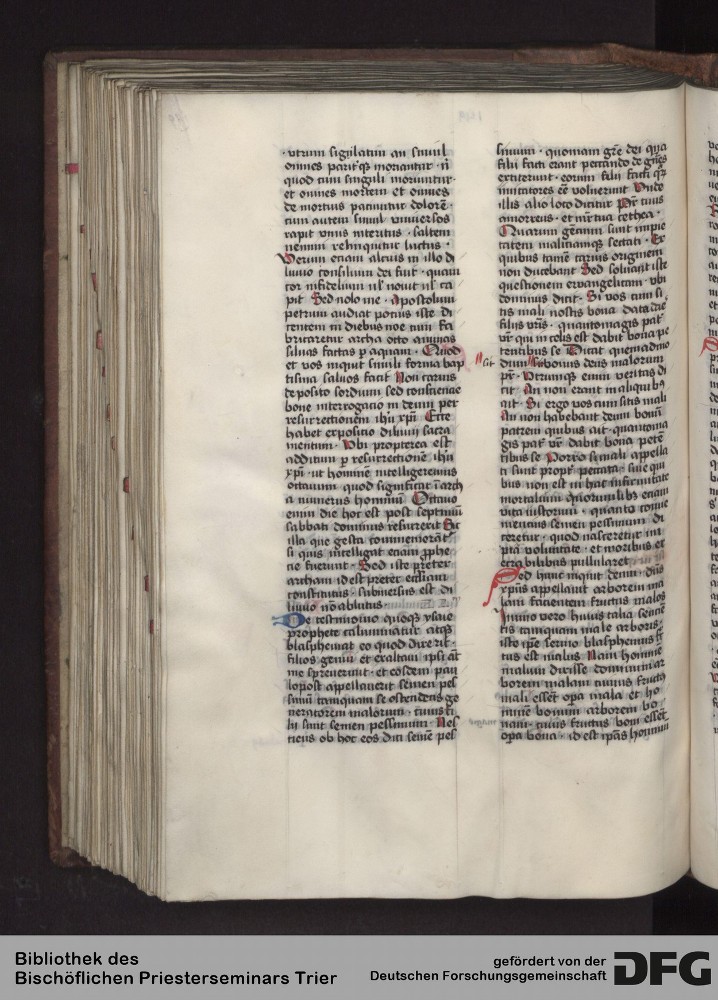 · vtrum sigillatim an simul
omnes paritˀqꝫ moriantur · n̄
quod cum singuli moriuntur ·
et omnes mortem et omnes
de mortuis patiuntur dolorē ·
cum autem simul vniuersos
rapit vnus interitus · saltem
nemini relinquitur luctus ·
Verum etiam alcuis in illo di
luuio consilium dei fuit · quam
tor infidelium nˡ nouit nˡ ca
pit Sed nolo me · Apostolum
petrum audiat potius iste di
centem in diebus noe cum fa
bricaretur archa octo animas
saluas factas p aquam · Quod
et vos inquit simili forma bap
tisma saluos facit Non carnis
deposito sordium sed conscience
bone interrogacio in deum per
resurrectionem ihū xpī Ecce
habet expositio diluuii sacra
mentum · Vbi propterea est
additum p resurrectionē ihū
xpī · ut hominē intelligeremus
octauum quod significat ī arch
a numerus hominū Octauo
enim die hoc est post septimū
sabbati dominus resurexit Sic
illa que gesta commemorāt
si quis intelligat etiam pphe
tie fuerunt · Sed iste preter
archam id est preter eccliam
constitutus · submersus est di
luuio nō ablutus ·
De testimonio quoqꝫ ysaie
prophete calumniatur atqꝫ
blasphemat eo quod dixerit ·
filios genui et exaltaui ipsi aūt
me spreuerunt · et eosdem pau
lopost appellauerit semen pes
simū tamquam se ostendens ge
neratorem malorum · cuius fi
lii sunt semen pessimum · Nes
ciens ob hoc eos dici semē pes
simum · quoniam grē dei quia
filii facti erant peccando degn̄es
extiterunt · eorum filii facti qꝫ
imitatores eē voluerunt Vnde
illis alio loco dicitur Pr̄ tuus
amorreus · et mr̄ tua cethea ·
Quarum gēcium sunt impie
tatem maliciamqꝫ sectati · Ex
quibus tamē carnis originem
non ducebant Sed soluant iste
questionem ewangelicam · vbi
dominus dicit · Si vos cum si
tis mali nostis bona data dare
filiis vr̄is · quantomagis pat̄
vr̄ qui in celis est dabit bona pe
tentibus se Dicat quemadmo
dum sit bonus deus malorum
pr̄ · Vtrumqꝫ enim veritas di
cit An non erant mali quibꝫ
ait · Si ergo vos cum sitis mali
An non habebant deum bonū
patrem quibus ait · quantoma
gis pat̄ vr̄ dabit bona petē
tibus se Porro si mali appella
ti sunt propt̄ peccata · sine qui
bus non est in hac infirmitate
mortalium quorumlibꝫ etiam
vita iustorum · quanto conue
nientius semen pessimum di
ceretur · quod nasceretur im
pia voluntate · et moribus ex
ecrabilibus pullularet
Sed hanc inquit deum · dn̄s
xpūs appellauit arborem ma
lam facientem fructus malos
Immo vero huius talia senten
tis tamquam male arboris ·
iste ipse sermo blasphemus f
tus est malus Nam hominē
malum dixisse dominum ar
borem malam cuius fructꝰ
mali essēt opa mala et ho
minē bonum arborem bo
nam · cuius fructus boni essēt
opa bona · id est ipsas hominū
sit
Bibliothek des
Bischöflichen Priesterseminars Trier
gefördert von der
Deutschen Forschungsgemeinschaft
DFG